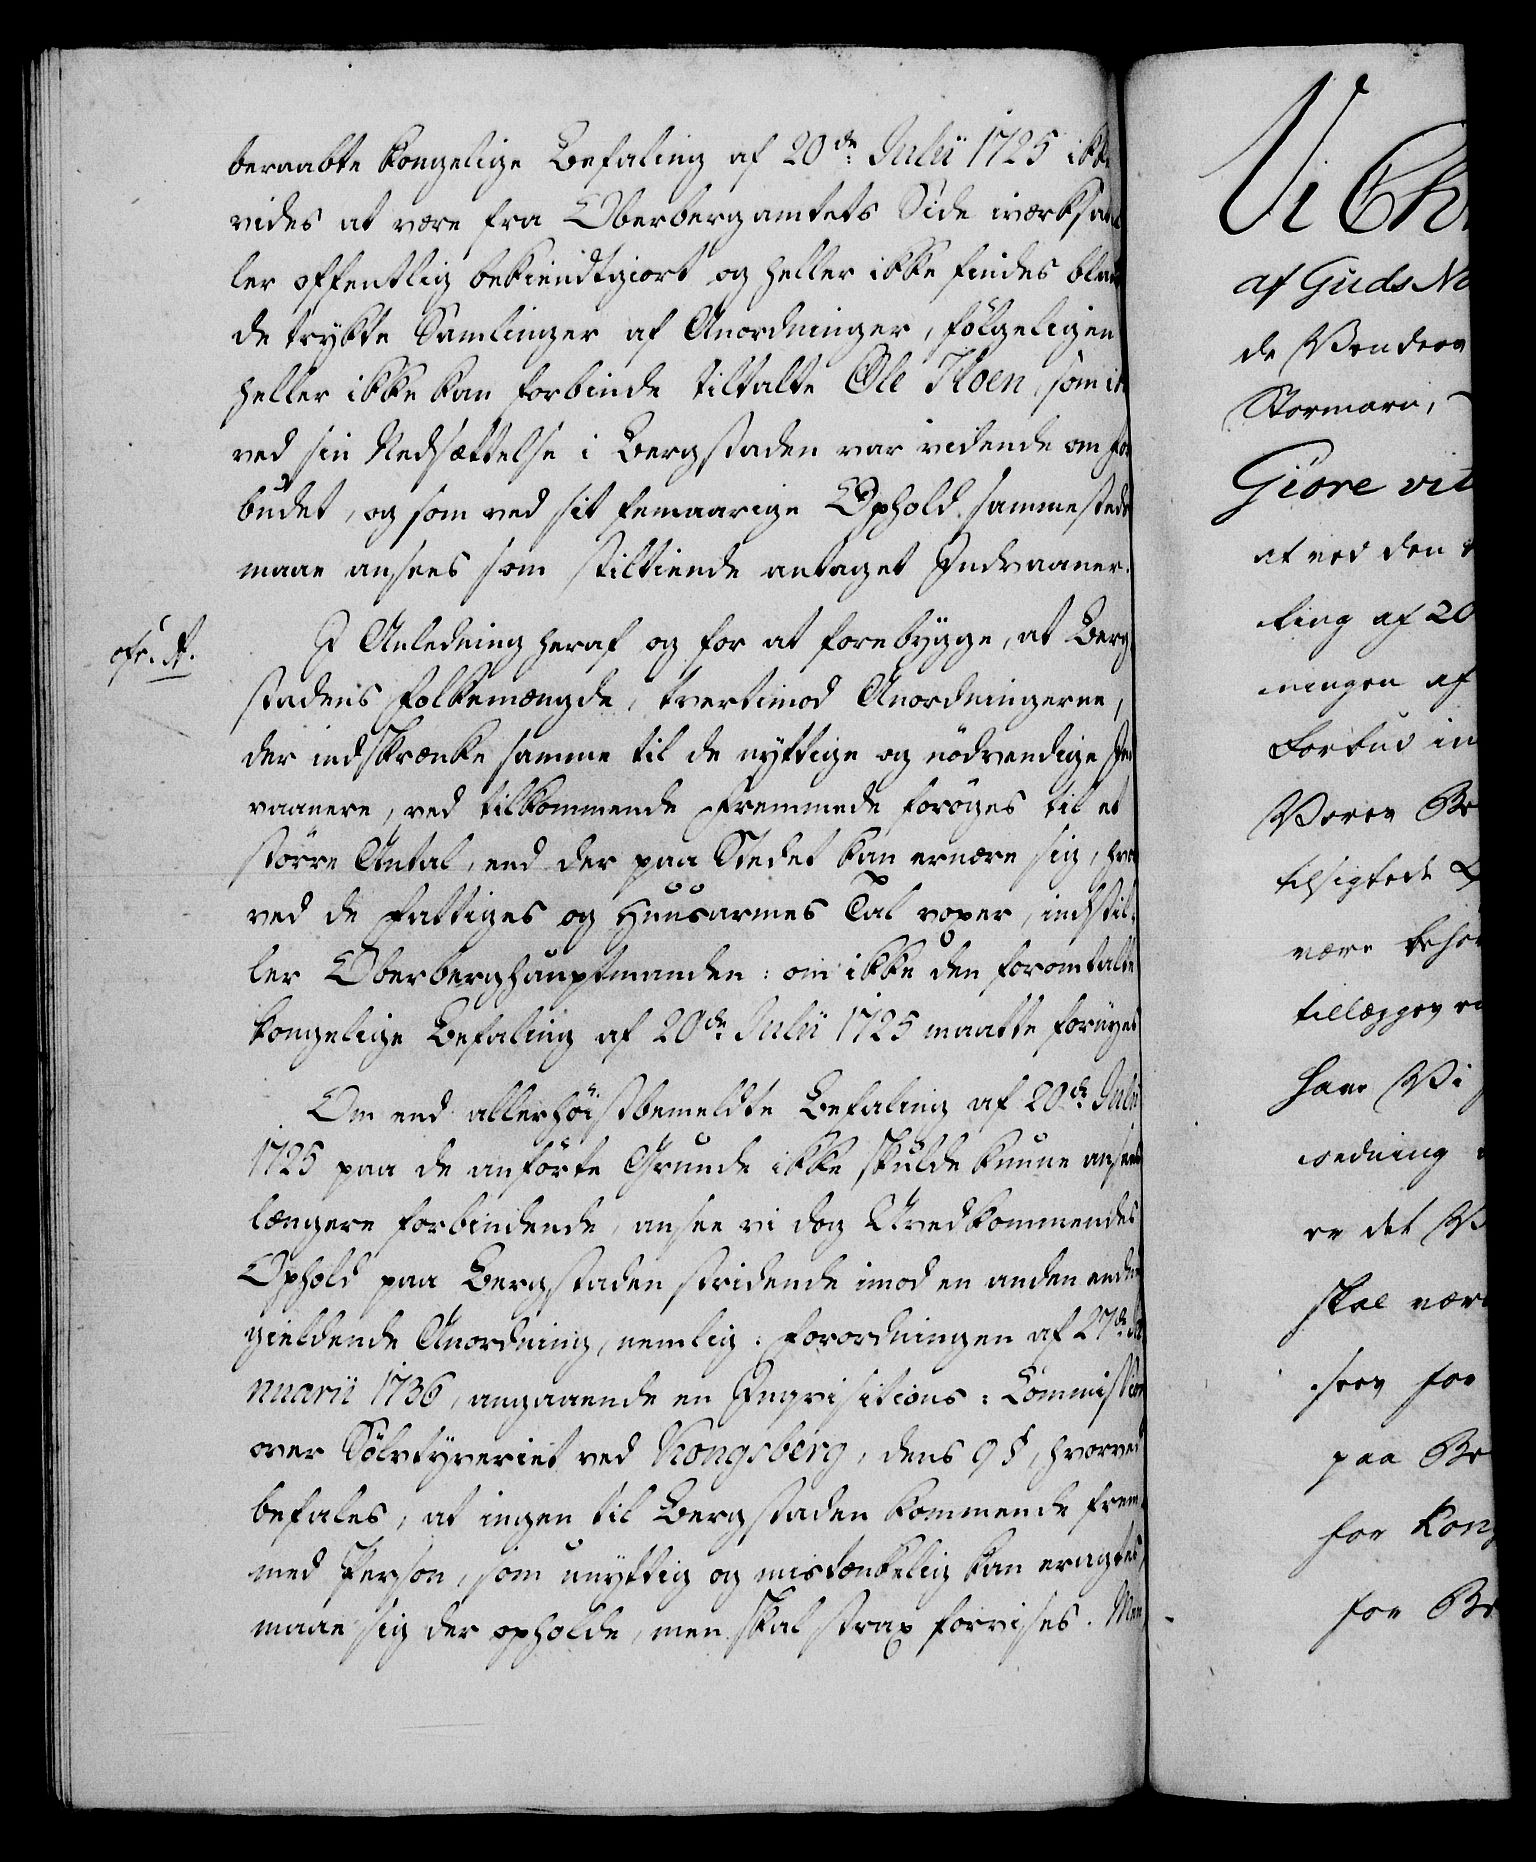 beraabte kongelige Befaling af 20de Julii 1725 ikke
vides at være fra Oberbergamtets Side iværksat el
ler offentlig bekiendtgiort og heller ikke findes blant
de trykte Samlinger af Anordninger, fölgeligen
heller ikke kan forbinde tiltalte Ole Moen, som
ved sin Nedsættelse i Bergstaden var vidende om for
budet, og som ved sit femaarige Ophold sammesteds
maae ansees som stiltiende antaget Indvaaner.
cfr. A.
I Anledning heraf og for at forebygge, at Berg
stadens folkemængde, tvertimod Anordningerne,
der indskrænke samme til de nyttige og nödvendige Ind
vaanere, ved tilkommende Fremmede foröges til et
större Antal, end der paa Stedet kan ernære sig, hvor
ved de Fattiges og Huusarmes Tal voxer, indstil
ler Oberberghauptmanden: om ikke den foromtalte
kongelige Befaling af 20de Julii 1725 maatte fornyes
Om end allerhöistbemeldte Befaling af 20de Julii
1725 paa de anförte Grunde ikke skulde kunne ansees
længere forbindende, ansee vi dog Uvedkommendes
Ophold paa Bergstaden stridende imod en anden endnu
gieldende Anordning, nemlig: Forordningen af 27de Ja
nuarii 1736, angaaende en Inqvisitions-Commission
over Sölvtyveriet ved Kongsberg, dens 9 §, hvorved
befales, at ingen til Bergstaden kommende frem
med Person, som unyttig og mistænkelig kan eragtes,
maae sig der opholde, men skal strax forvises. Men
Vi Chr
af Guds N
de Venders
Stormarn,
Giöre vit
at ved den
ling af 20
ningen af
Forbud in
Vores Be
tilsigtede
være
tillægges
have Vi
ordning
re det V
skal vær
sees for
paa Be
for Kong
for Be